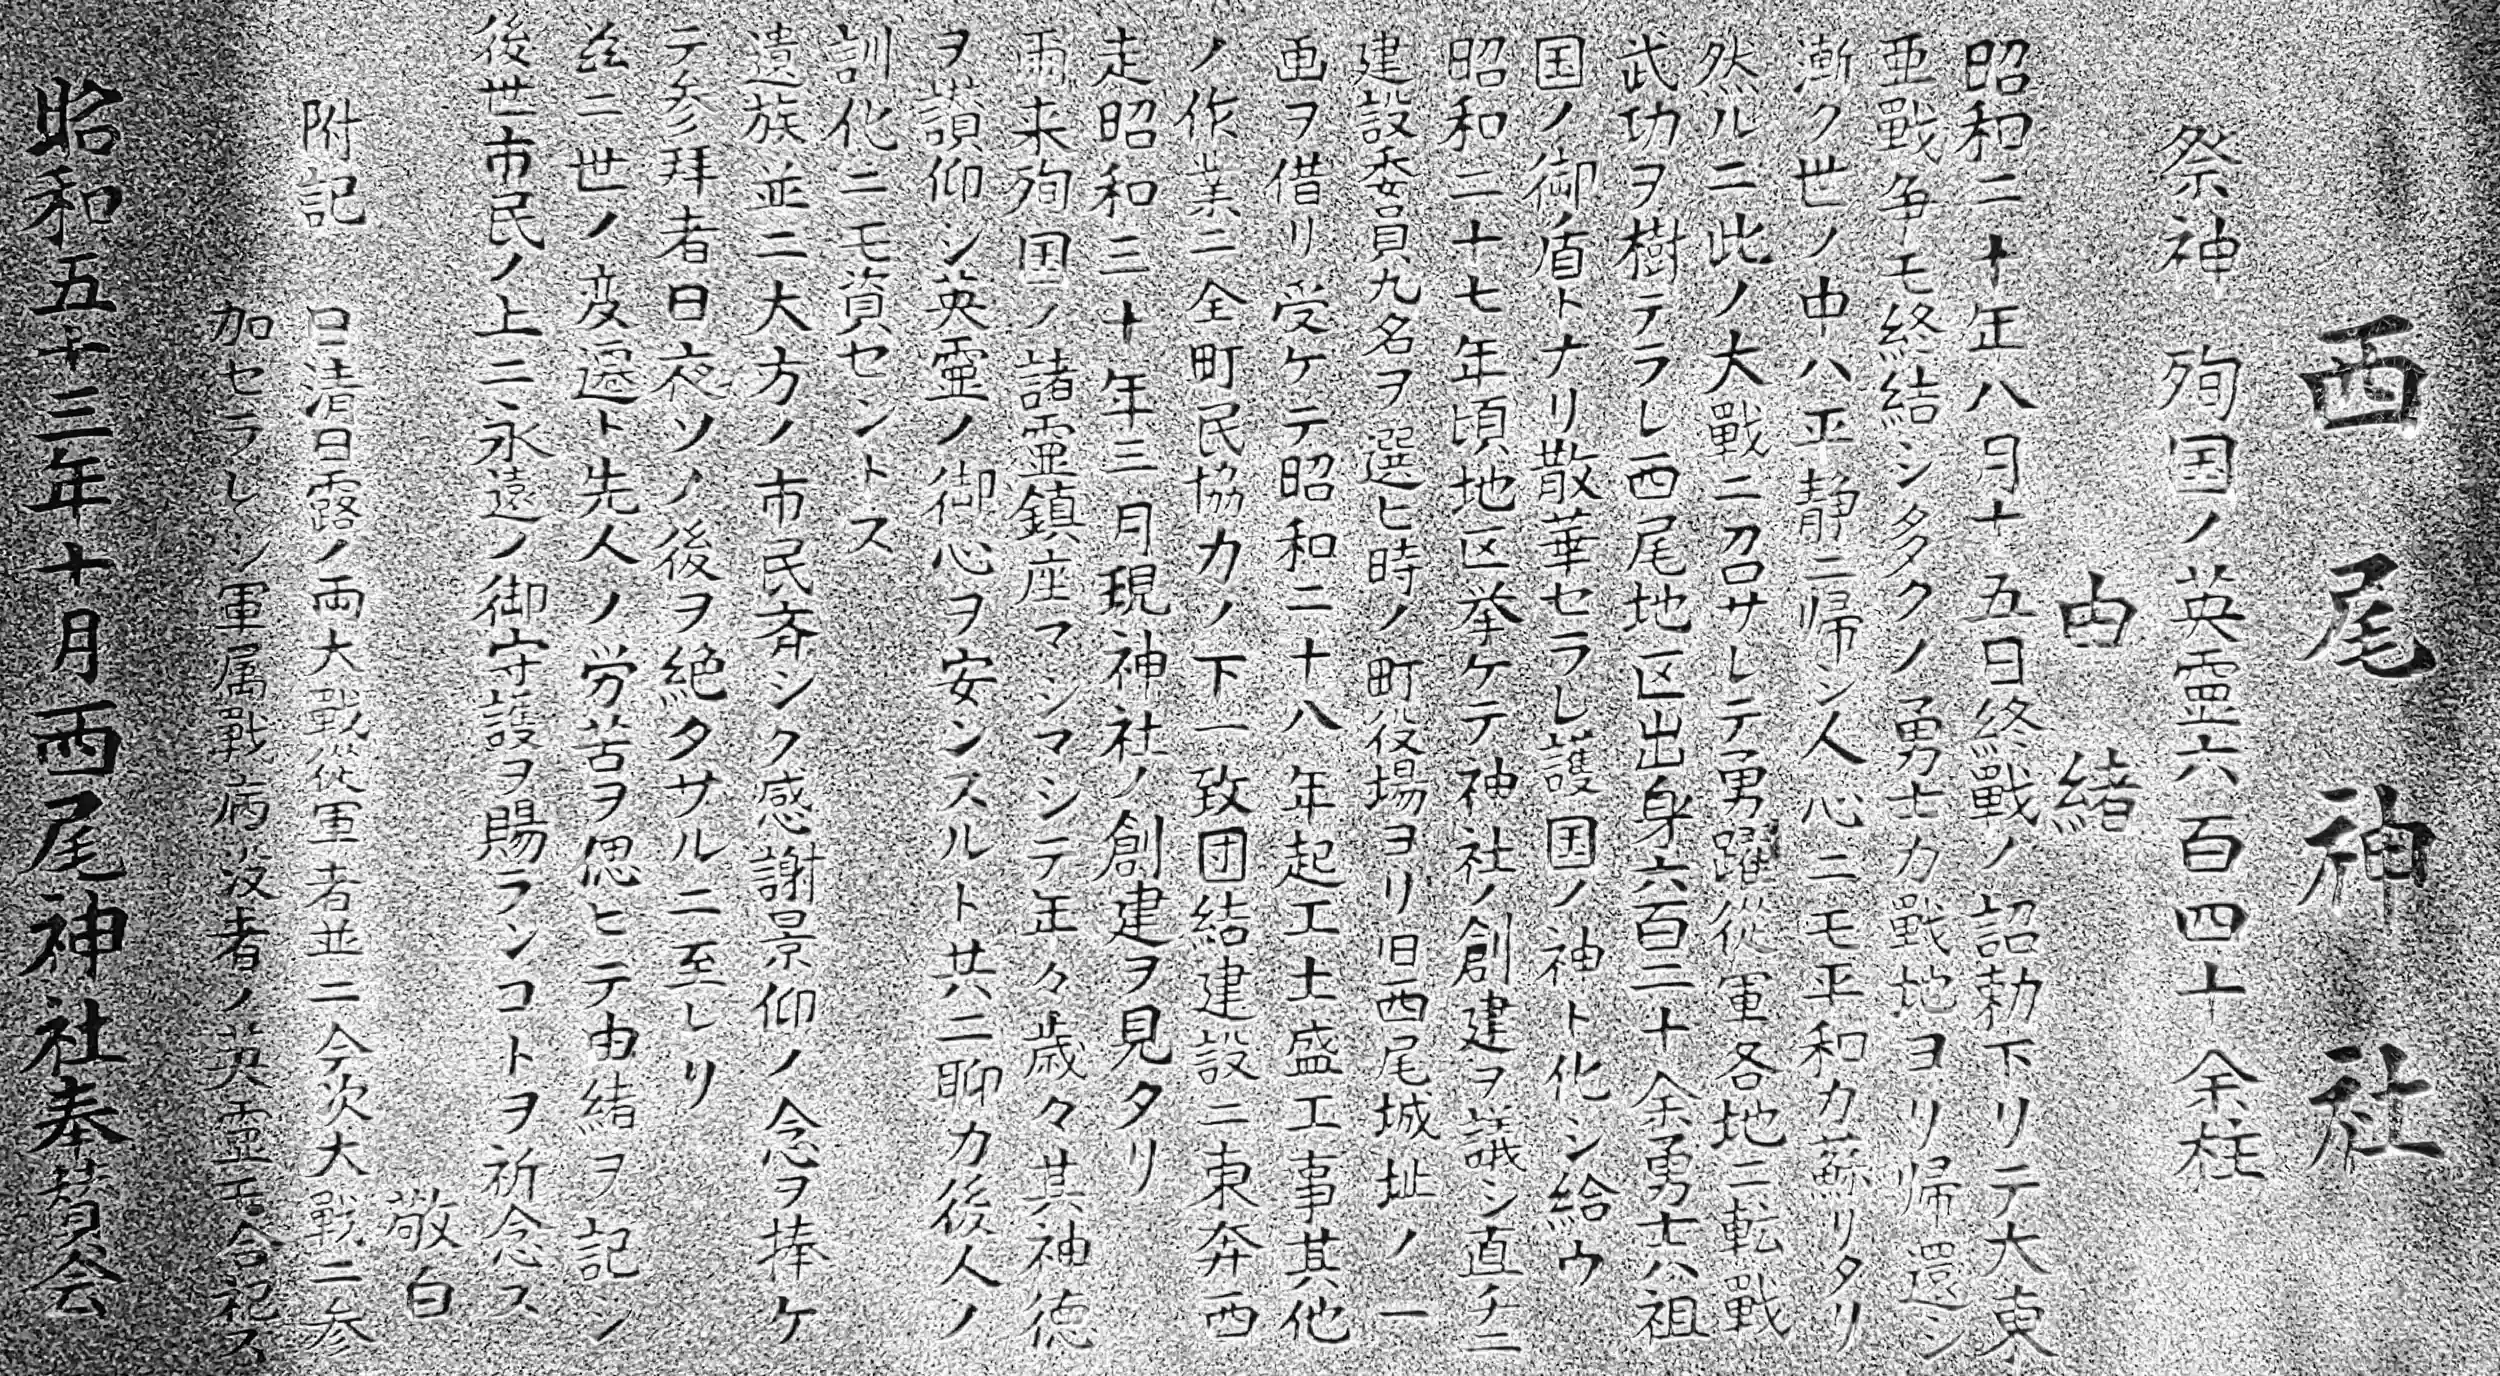 西尾神社
祭神 殉国ノ英霊六百四十余柱
由緒
昭和二十年八月十五日終戦ノ詔勅下リテ大東
亜戰争モ終結シ多クノ勇士カ戰地ヨリ帰還シ
漸ク世ノ中ハ平静ニ帰シ人心ニモ平和カ蘇リタリ
然ルニ此ノ大戰ニ召サレテ勇躍從軍各地ニ転戰
武功ヲ樹テラレ西尾地区出身六百二十余勇士ハ祖
国ノ御盾トナリ散華セラレ護国ノ神ト化シ給ウ
昭和二十七年頃地区挙ケテ神社ノ創建ヲ議シ直チニ
建設委員九名ヲ選ヒ時ノ町役場ヨリ旧西尾城址ノ一
画ヲ借リ受ケテ昭和二十八年起工土盛工事其他
ノ作業ニ全町民協力ノ下一致団結建設ニ東奔西
走昭和三十年三月現神社ノ創建ヲ見タリ
爾来殉国ノ諸霊鎮座マシマシテ年々歳々其神徳
ヲ讃仰シ英霊ノ御心ヲ安ンスルト共ニ聊カ後人ノ
訓化ニモ資セントス
遺族並ニ大方ノ市民斉シク感謝景仰ノ念ヲ捧ケ
テ参拜者日夜ソノ後ヲ絶タサルニ至レリ
玆ニ世ノ変遷ト先人ノ労苦ヲ偲ヒテ由緒ヲ記シ
後世市民ノ上ニ永遠ノ御守護ヲ賜ランコトヲ祈念ス
敬白
附記 日清日露ノ両大戰從軍者並ニ今次大戰ニ参
加セラレシ軍属戰病没者ノ英霊モ合祀ス
昭和五十三年十月西尾神社奉賛会